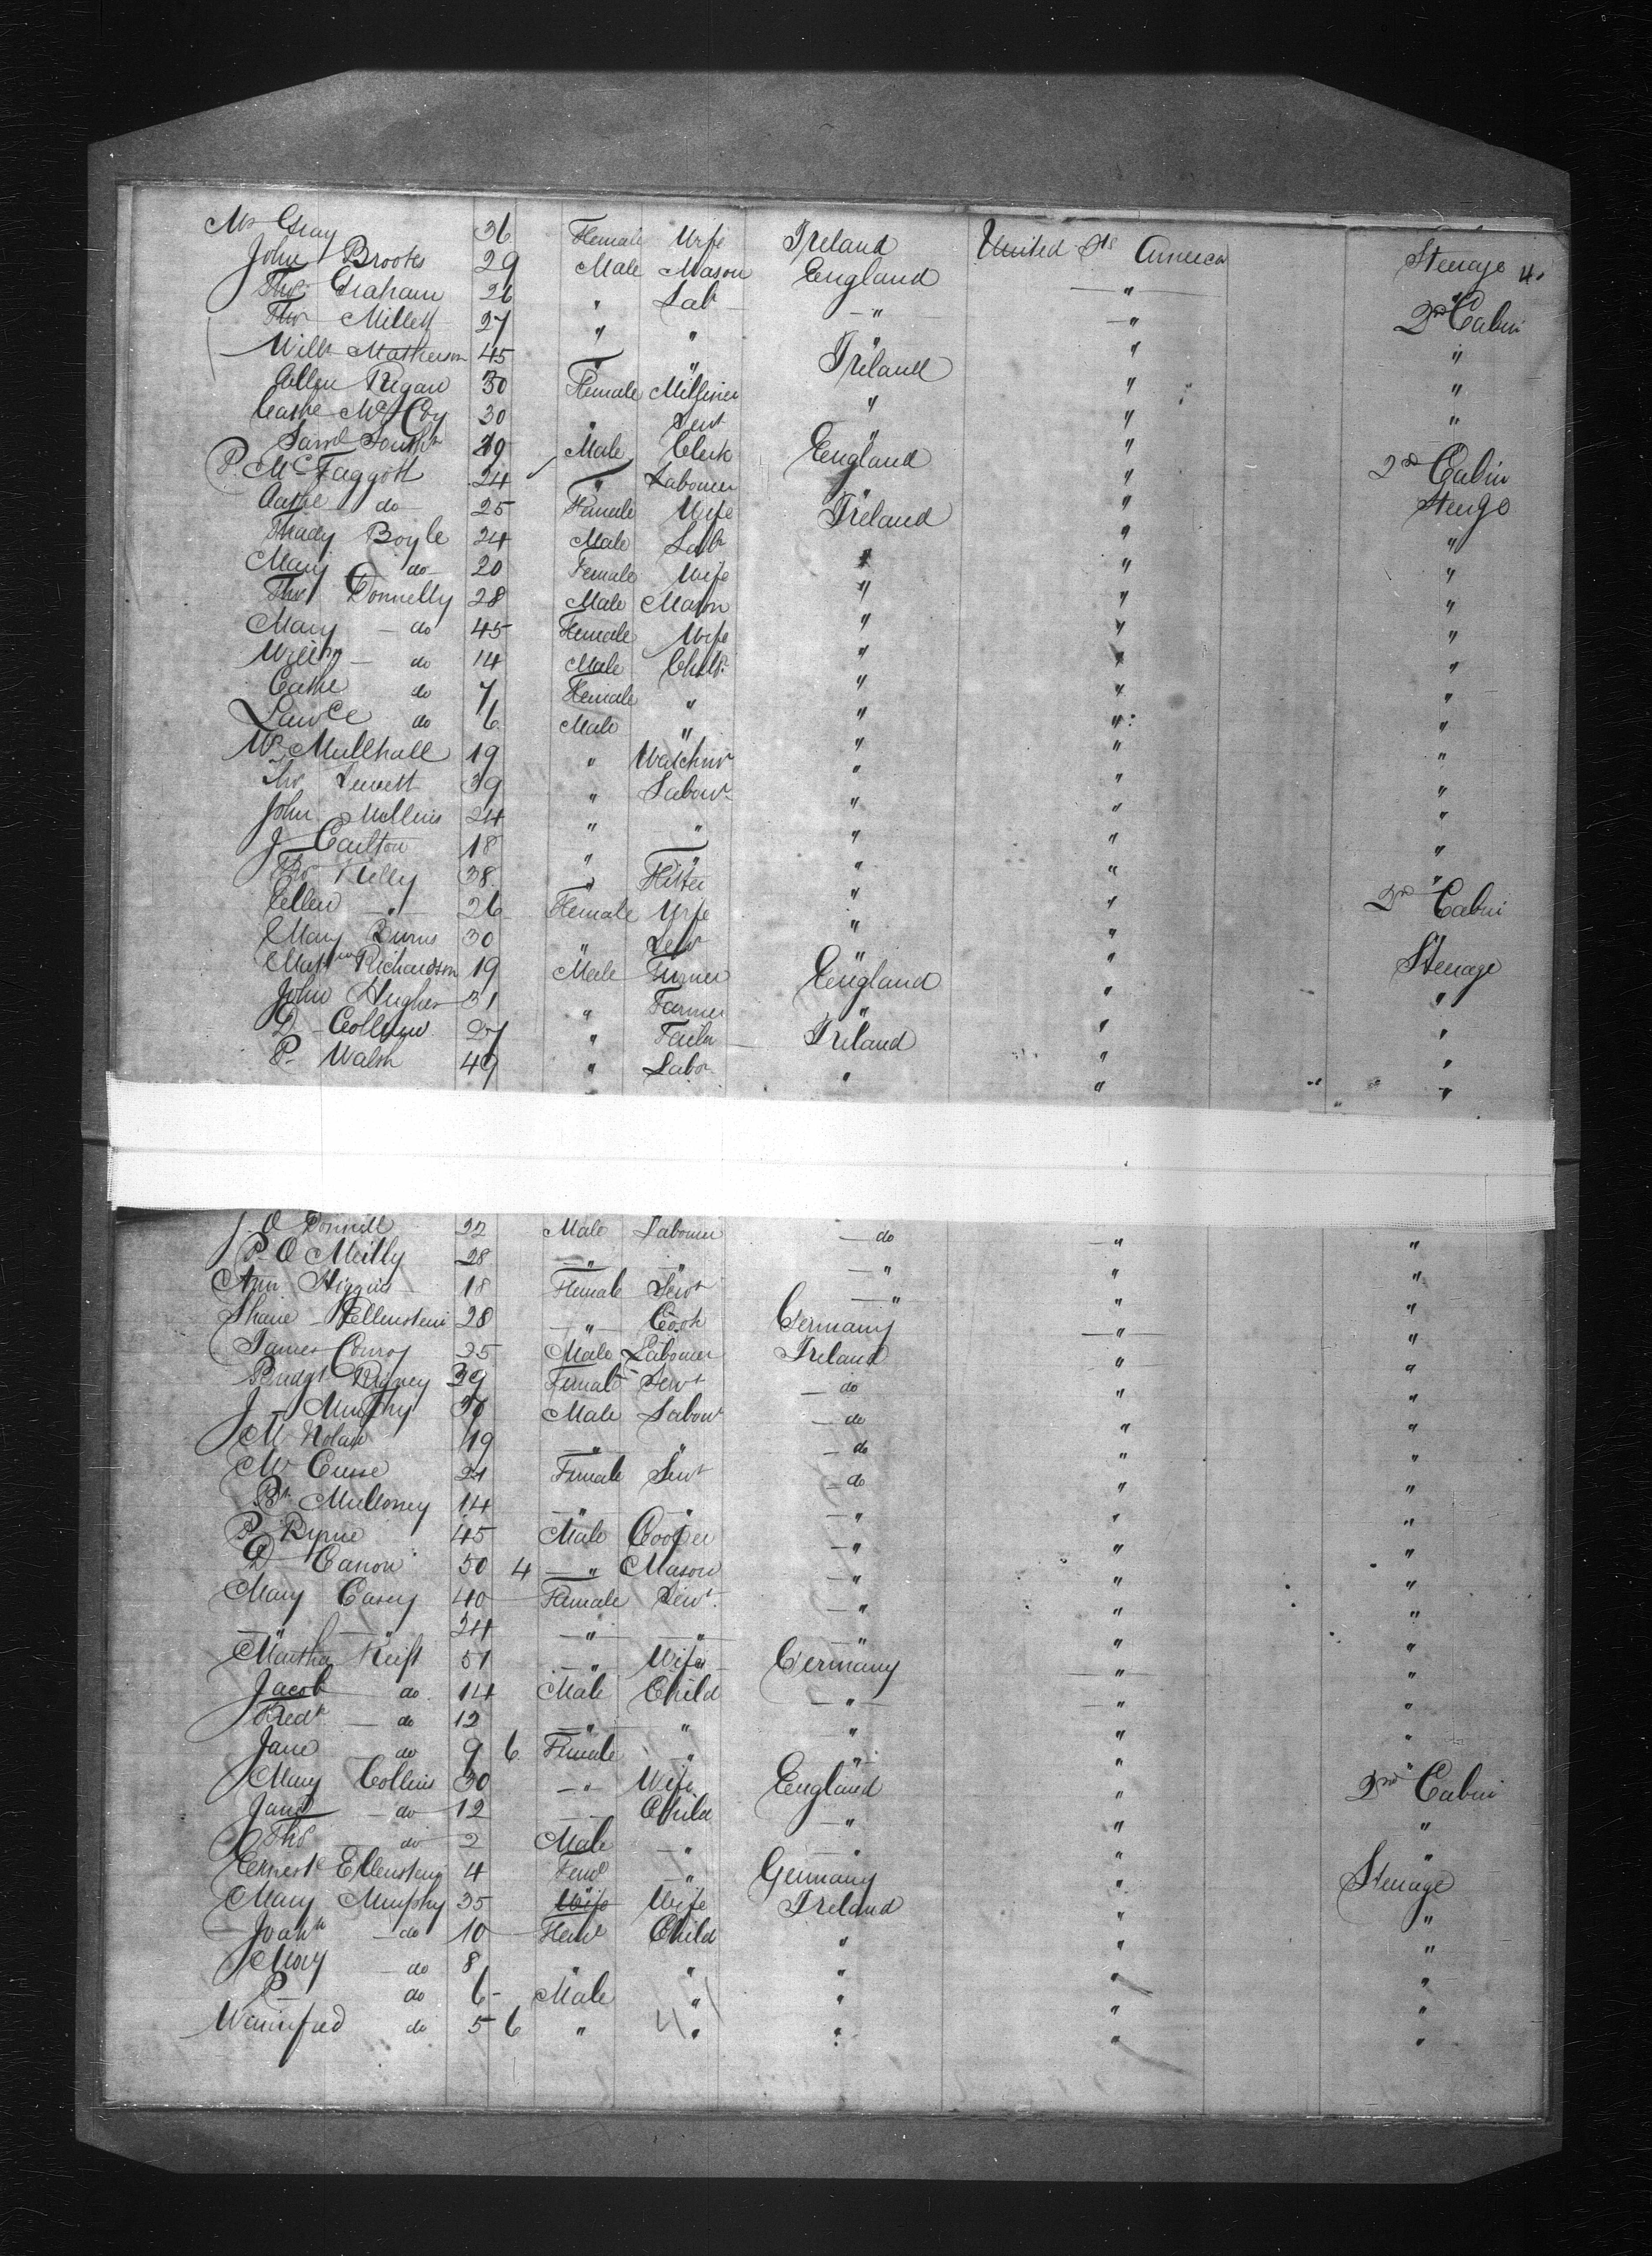 Mrs Gray 36 Female Wife Ireland United Sts America Steerage 4.
John Brooks 29 Male Mason England " "
Thos Graham 26 " Labr " " 2nd Cabin
Thos Millett 27 " " " " "
Willm Matherson 45 " " Ireland " "
Ellen Regan 30 Female Milliner " " "
Cathe McCoy 30 " Servt " "
Saml South 29 Male Clerk England " 2nd Cabin
P. McFaggott 24 " Labourer " " Steerge
Cathe do 25 Female Wife Ireland " "
Thady Boyle 24 Male Labr " " "
Mary do 20 Female Wife " " "
Thos Donnelly 28 Male Mason " " "
Mary do 45 Female Wife " " "
Willm do 14 Male Child " " "
Cathe do 7 Female " " " "
Lawce do 6 Male " " " "
Mullhall 19 " " " "
Thos 39 " Labour " " "
John Mullins 24 " " " " "
J Carlton 18 " " " " "
Thos Kelly 38 " Fitter " " "
Ellen " 26 Female Wife " " 2nd Cabin
Mary Burns 30 " Servt " "
Richardson 19 Male England " Steerage
John Hughes 31 " Farmer " " "
D Collum 27 " Ireland " "
P. Walsh 49 " Labor " " "
J. O Donnell 22 Male Labourer do " "
P. O Meilly 28 " " " " "
Ann Higgins 18 Female Servt " " "
Ellenstein 28 " Cook Germany " "
James Conroy 25 Male Labourer Ireland " "
Bridgt 39 Female Servt do " "
J Murphy Male Labour do " "
M Nolan 19 " " do " "
21 Female Servt do " "
Br Mulloney 14 " " " " "
P. Byrne 45 Male Cooper " " "
D Canon 50 4 " Mason " " "
Mary Casey 40 Female Servt " " "
" " 24 " " " " "
Martha Keift 51 " Wife Germany " "
Jacob do 14 Male Child " " "
Fredk do 12 " " " " "
Jane do 9 6 Female " " " "
Mary Collins 30 " Wife England " 2nd Cabin
Jane do 12 Child " " "
Thos do 2 Male " " " "
Ellenstein 4 Feml " Germany " Steerage
Mary Murphy 35 Wife Wife Ireland " "
Joahn do 10 Feml Child " " "
Mary do 8 " " " " "
P do 6 Male " " " "
Winnifred do 5 6 " " " " "